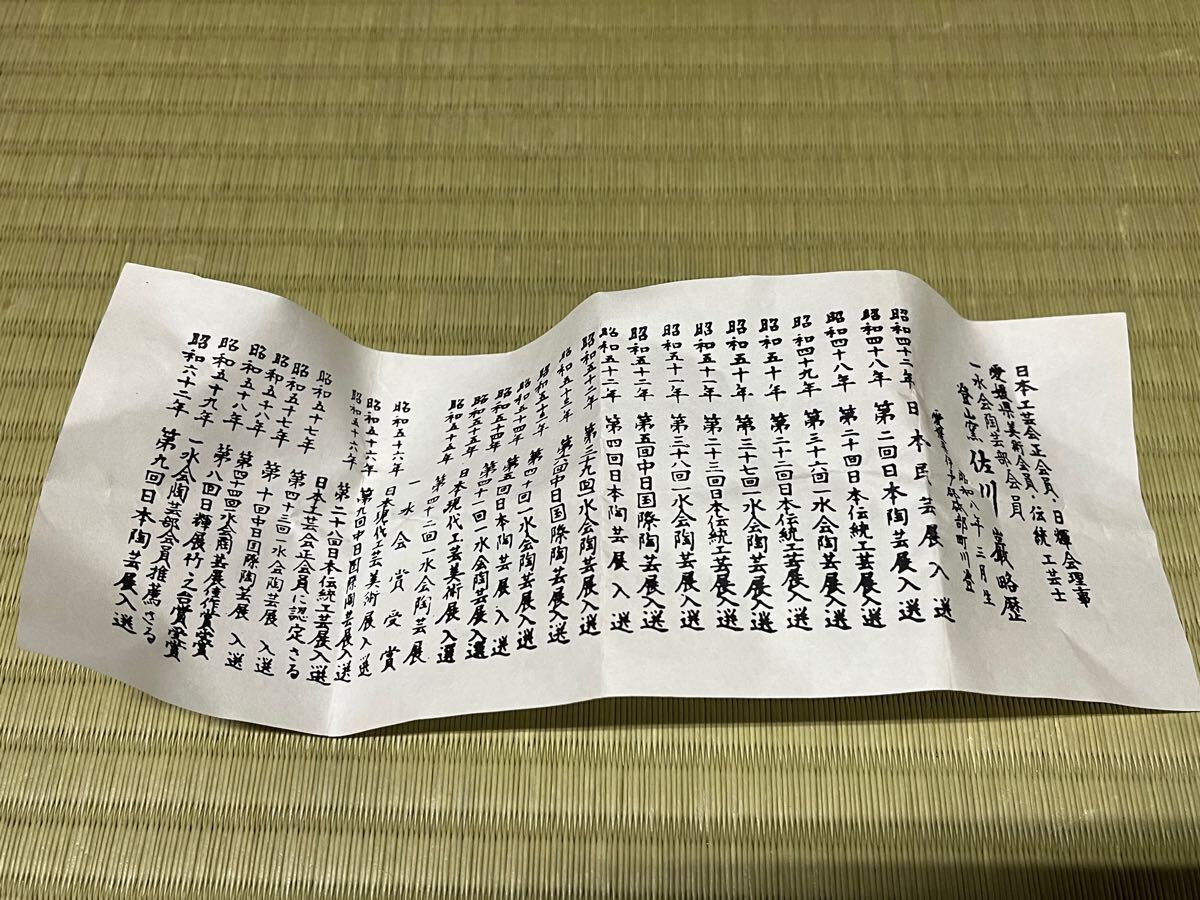 日本工芸会正会員・日輝会理事
愛媛県美術会員・伝統工芸士
一水会陶芸部会員
登山窯 佐川 巌略歴
昭和八年三月生
砥部町川登
昭和四十二年 日本民芸展入選
昭和四十八年 第二回日本陶芸展入選
昭和四十八年 第二十四回日本伝統工芸展入選
昭和四十九年 第三十六回一水会陶芸展入選
昭和五十年 第二十二回日本伝統工芸展入選
昭和五十年 第三十七回一水会陶芸展入選
昭和五十一年 第二十三回日本伝統工芸展入選
昭和五十一年 第三十八回一水会陶芸展入選
昭和五十二年 第五回中日国際陶芸展入選
昭和五十二年 第四回日本陶芸展入選
昭和五十二年 第三九回一水会陶芸展入選
昭和五十三年 第六回中日国際陶芸展入選
昭和五十三年 第四十回一水会陶芸展入選
昭和五十四年 第五回日本陶芸展入選
昭和五十四年 第四十一回一水会陶芸展入選
昭和五十五年 日本現代工芸美術展入選
昭和五十五年 第四十二回一水会陶芸展
一水会賞受賞
昭和五十六年 日本現代工芸美術展入選
昭和五十六年 第九回中日国際陶芸展入選
昭和五十六年 第二十八回日本伝統工芸展入選
昭和五十七年 日本工芸会正会員に認定さる
昭和五十七年 第四十三回一水会陶芸展入選
昭和五十八年 第十回中日国際陶芸展入選
昭和五十八年 第四十四回一水会陶芸展佳作賞受賞
昭和五十九年 第八回日輝展竹之台賞受賞
一水会陶芸部会員推薦さる
昭和六十二年 第九回日本陶芸展入選